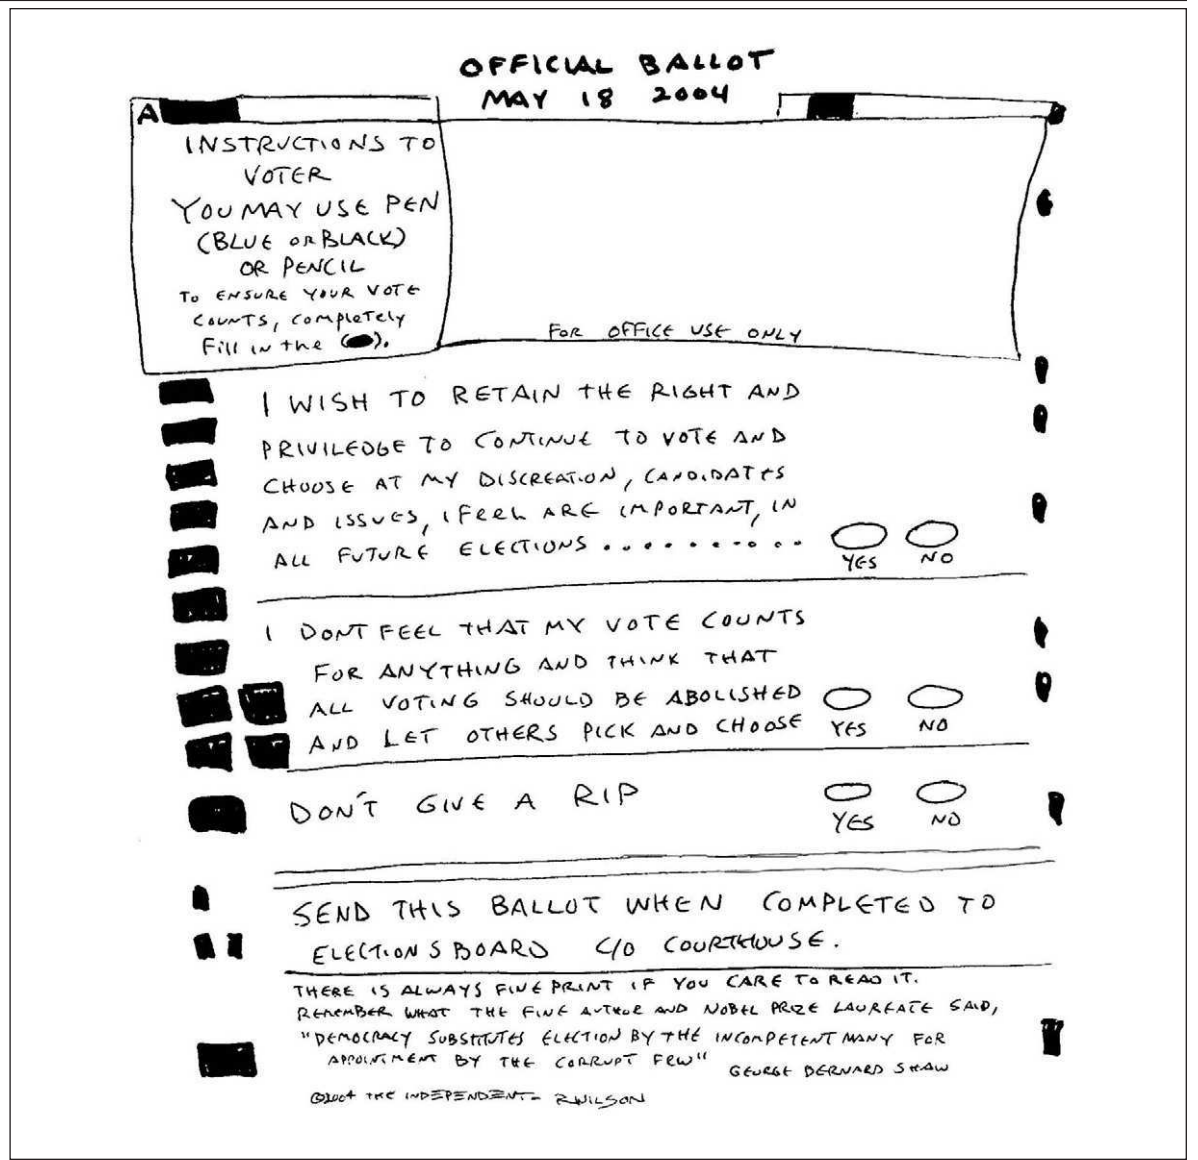 OFFICIAL BALLOT
MAY 18 2004
A
INSTRUCTIONS TO
VOTER
YOU MAY USE PEN
(BLUE OR BLACK)
OR PENCIL
TO ENSURE YOUR VOTE
COUNTS, COMPLETELY
Fill in the ( ).
FOR OFFICE USE ONLY
I WISH TO RETAIN THE RIGHT AND
PRIVILEDGE TO CONTINUE TO VOTE AND
CHOOSE AT MY DISCREATION, CANDIDATES
AND ISSUES, I FEEL ARE IMPORTANT, IN
ALL FUTURE ELECTIONS ..........
YES NO
I DONT FEEL THAT MY VOTE COUNTS
FOR ANYTHING AND THINK THAT
ALL VOTING SHOULD BE ABOLISHED
AND LET OTHERS PICK AND CHOOSE YES NO
DON'T GIVE A RIP
YES NO
SEND THIS BALLOT WHEN COMPLETED TO
ELECTIONS BOARD C/O COURTHOUSE.
THERE IS ALWAYS FINE PRINT IF YOU CARE TO READ IT.
REMEMBER WHAT THE FINE AUTHOR AND NOBEL PRIZE LAUREATE SAID,
"DEMOCRACY SUBSTITUTES ELECTION BY THE INCOMPETENT MANY FOR
APPOINTMENT BY THE CORRUPT FEW"
GEORGE BERNARD SHAW
©2004 THE INDEPENDENT - RWILSON